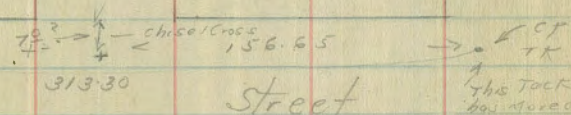 chisel cross
< 156.65 → CP
TK
313.30
Street
This Tack
has moved